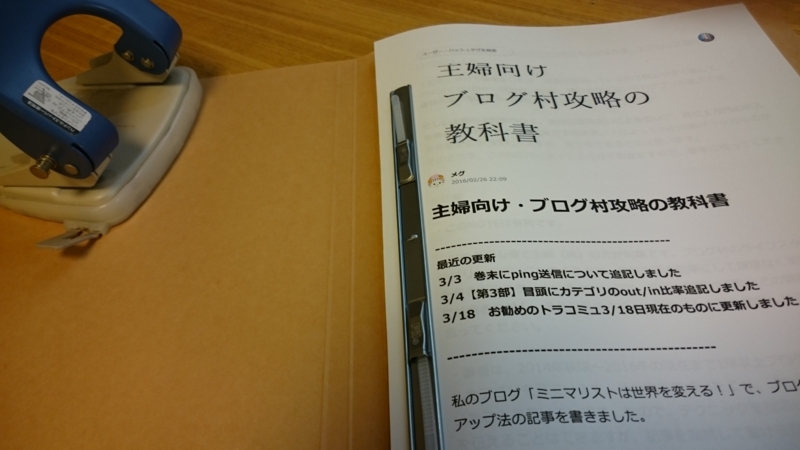 主婦向け
ブログ村攻略の
教科書
メグ
2016/02/26 22:09
主婦向け・ブログ村攻略の教科書
最近の更新
3/3 巻末にping送信について追記しました
3/4【第3部】冒頭にカテゴリのout/in比率追記しました
3/18 お勧めのトラコミュ3/18日現在のものに更新しました
私のブログ「ミニマリストは世界を変える！」で、ブログ
アップ法の記事を書きました。